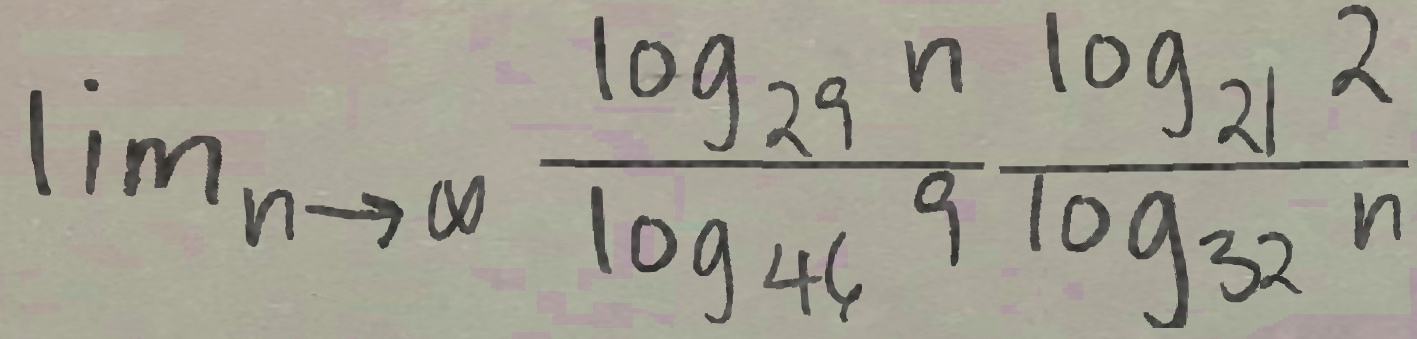 lim n→∞ log_29 n / log_46 9 log_21 2 / log_32 n